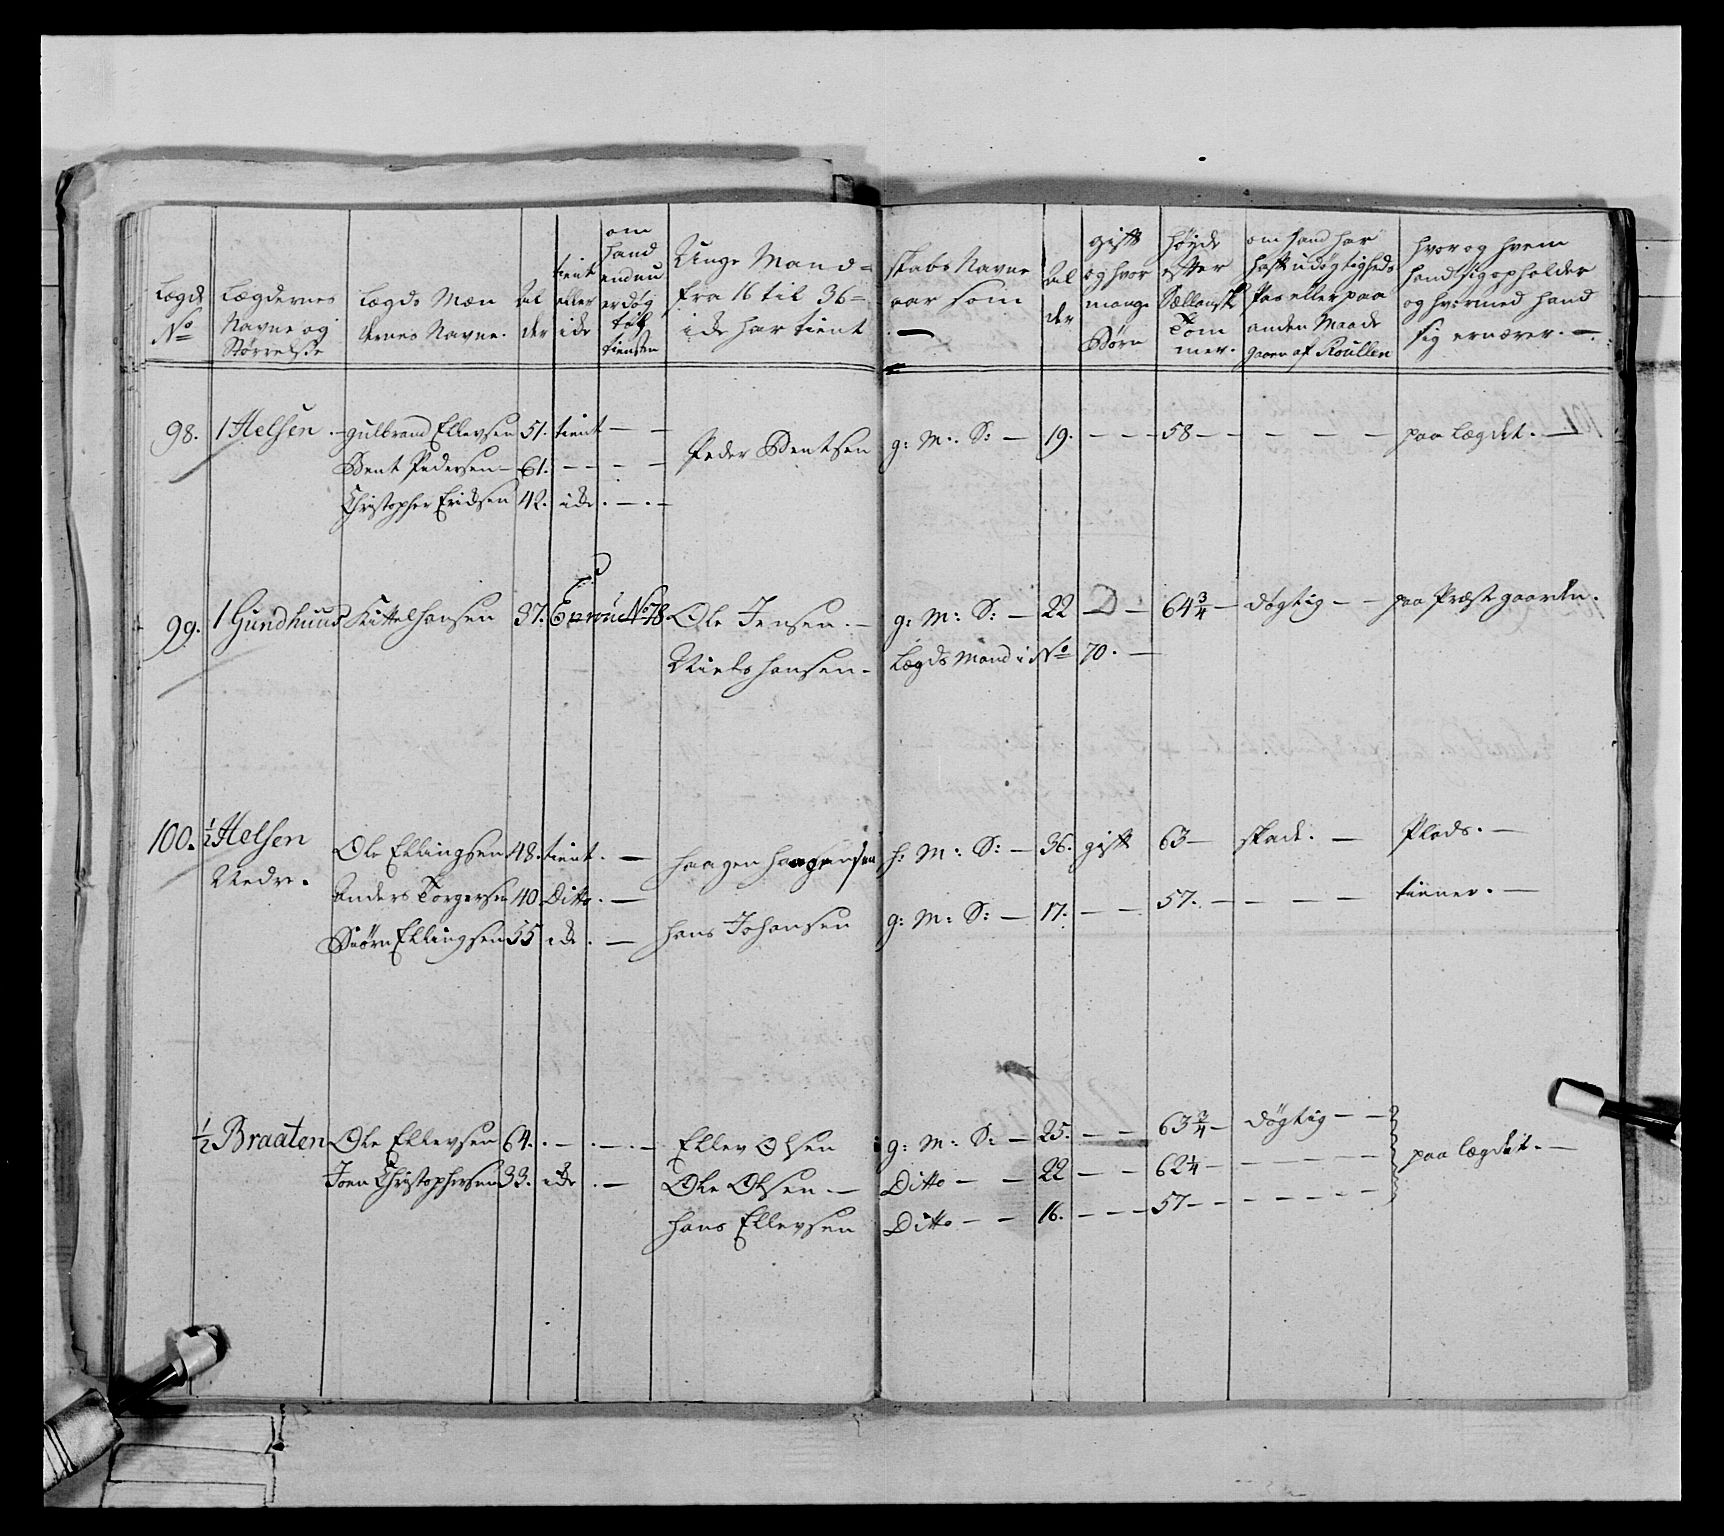 Lægds No | Lægdernes Navne og Størrelsse | Lægds Mæn dernes Navne. | Al der | tient eller ide | om hand endnu er døg til tiensten | Unge Mand= fra 16 til 36= ide har tient | skabs Navne aar som — | Al der | gift og hvor mange Børn | høyde efter Sællansk Tom mer. | om hand har Pas eller paa anden Maade gaaen af Roullen | hvor og hvem hand sig opholder og hvormed hand sig ernærer. —
98. 1 Helsen. — gulbrand Ellevsen 51. tient — — Peder Bentsen g: M: S: — 19. — — 58 — — — — — paa Lægdet. —
Bent Pedersen — 61. — — — —
Christopher Eridsen 42. ide. — . —
99. 1 Gundhuus Kittel hansen 37. No 78 Ole Jensen. — g: M: S: — 22 — D — 64 3/4 — døgtig — — paa Præstgaarden.
Niels hansen — Lægds Mand i No 70. —
100. 1/2 Helsen Ole Ellingsen 48. tient. — haagen haagensen h: M: S: — 36. gift 63 — skade. — Plads. —
Nedre. Anders Torgersen 40 Ditto. — hans Johansen g: M: S: — 17. — — 57. — — — — tiener. —
Biørn Ellingsen 55 ide. —
1/2 Braaten Ole Ellevsen 64. . — . — . — Ellev Olsen g: M: S: — 25. — — 63 3/4 — døgtig — — paa Lægdet. —
Joen Christophersen 33. ide. — Ole Olsen — Ditto — — 22 — — 62 1/4 — — — — —
hans Ellevsen Ditto — — 16. — — — 57 — — — — — —